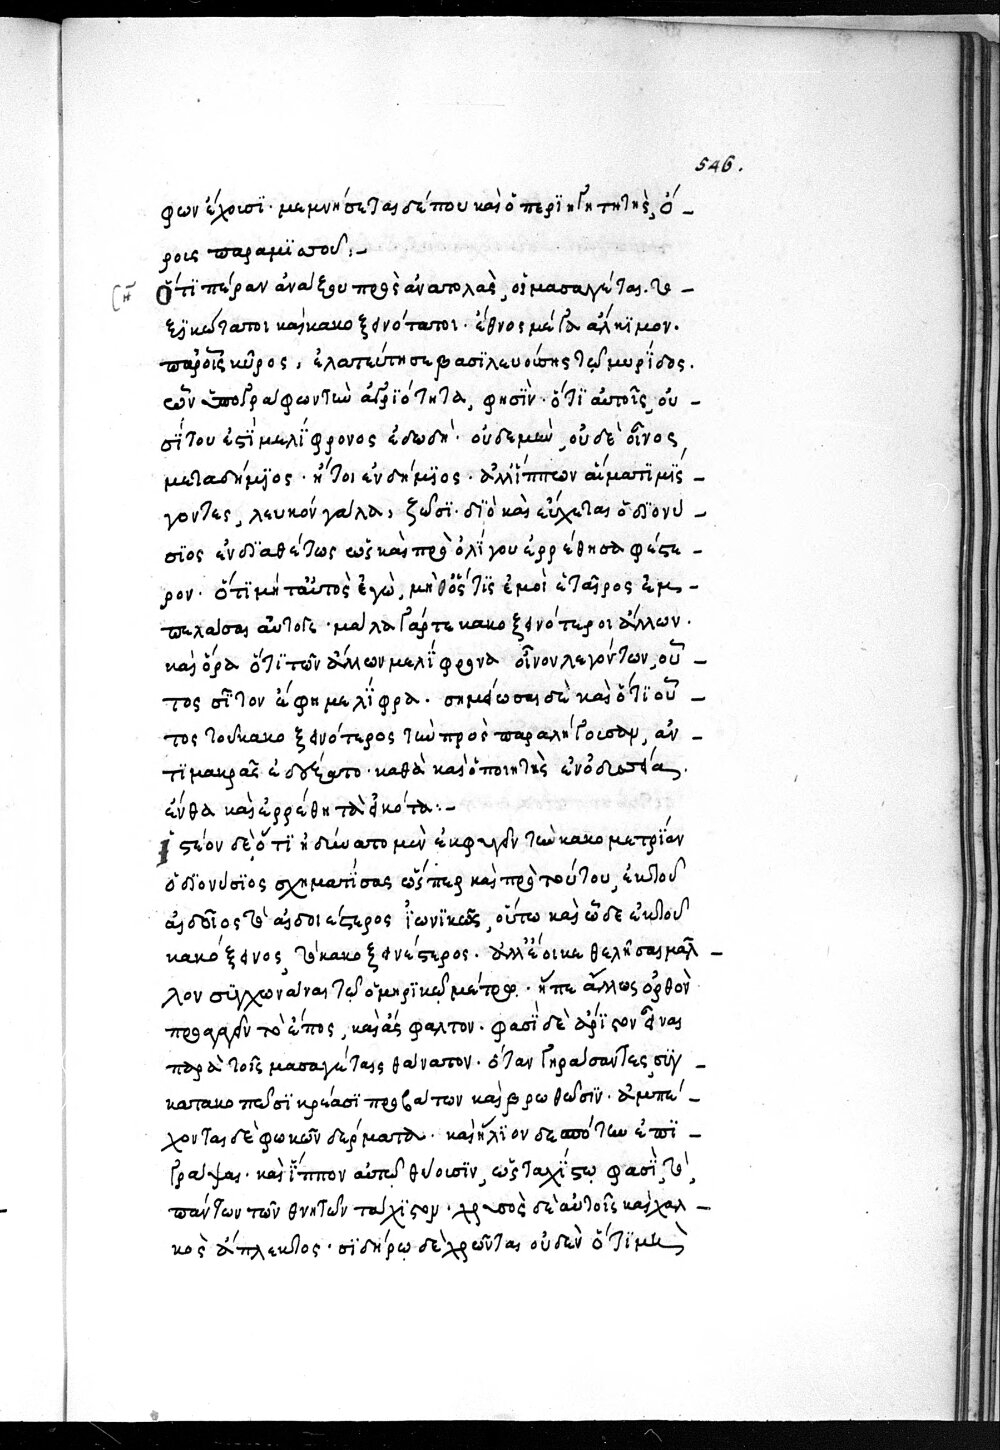 546.
φων ἔχουσι· μεμνήσεται δέ που καὶ ὁ περιηγητὴς, ὄ-
ροις παραμϊσποῦ:-
Ὅτι πέραν ἀράξου πρὸς ἀνατολὰς, οἱ μασαγέται. το-
ξικώτατοι καὶ κακοξεινότατοι· ἔθνος μέγα ἄλκιμον.
παρ' οἷς κῦρος, ἐλατεύτησε βασιλευούσης τῶ μυρίδος.
ὧν ὑπογράφων τὴν ἀγριότητα, φησίν· ὅτι αὐτοῖς, οὐ
σίτου ἐστὶ μελίφρονος ἐδωδή· οὐδεμὴν, οὐδὲ οἶνος,
μεταδήμιος· ἤτοι ἐνδήμιος· ἀλλ' ἵππων αἵματι μίσ-
γοντες, λευκὸν γάλα, ζῶσι· διὸ καὶ εὔχεται ὁ διονύ-
σιος ἐνδιαθέτως ὡς καὶ πρὸ ὀλίγου ἐρρέθη σαφέστε-
ρον· ὅτι μήτ' αὐτὸς ἐγὼ, μήθ' ὅστις ἐμοὶ ἑταῖρος ἐμ-
πελάσαι αὐτοῖς· μάλα γάρ τε κακοξεινότεροι ἄλλων.
καὶ ὅρα ὅτι τῶν ἄλλων μελίφρονα οἶνον λεγόντων, οὗ-
τος σῖτον ἔφη μελίφρα. σημείωσαι δὲ καὶ ὅτι οὗ-
τος τοῦ κακοξεινότερος τὴν πρὸς παραλήγουσαν, ἀν-
τὶ μακρᾶς ἐδέξατο· καθὰ καὶ ὁ ποιητὴς ἐν ὀδυσσείᾳ.
ἔνθα καὶ ἐρρέθη τὰ εἰκότα:-
Ἰστέον δὲ, ὅτι ἠδύνατο μὲν ἐκφυγεῖν τὴν κακομετρίαν
ὁ διονύσιος σχηματίσας ὥσπερ καὶ πρὸ τούτου, ἐκ τοῦ
αἰδοῖος τὸ αἰδοιέστερος ἰωνικῶς, οὕτω καὶ ὧδε ἐκ τοῦ
κακόξεινος, τὸ κακοξεινέστερος. ἀλλ' ἔοικε θελῆσαι μᾶλ-
λον συγχωνεῦναι τῶ ὁμηρικῶ μέτρῳ· ἤπε ἄλλως ὀρθὸν
προαγαγεῖν τὸ ἔπος, καὶ ἄσφαλτον. φασὶ δὲ ἄριστον εἶναι
παρὰ τοῖς μασαγέταις θάνατον. ὅταν γηράσαντες, συγ-
κατακοπῶσι κρέασι προβάτων καὶ βρωθῶσιν· ἀμπέ-
χονται δὲ φωκῶν δέρματα. καὶ ἥλιον δεσπότην ἐπι-
γράψαι. καὶ ἵππον αὐτῶ θύουσιν, ὡς ταχίστῳ φασὶ, τὸ,
πάντων τῶν θνητῶν τάχιστον. χρυσὸς δὲ αὐτοῖς καὶ χαλ-
κὸς ἄπλεκτος. σιδήρῳ δὲ χρῶνται οὐδὲν ὅτι μὴ